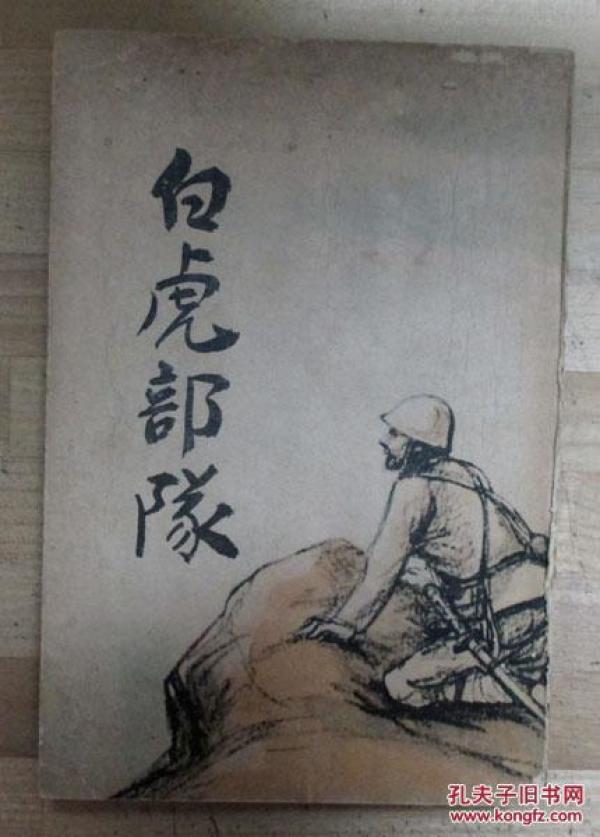 白虎部隊
孔夫子旧书网
www.kongfz.com